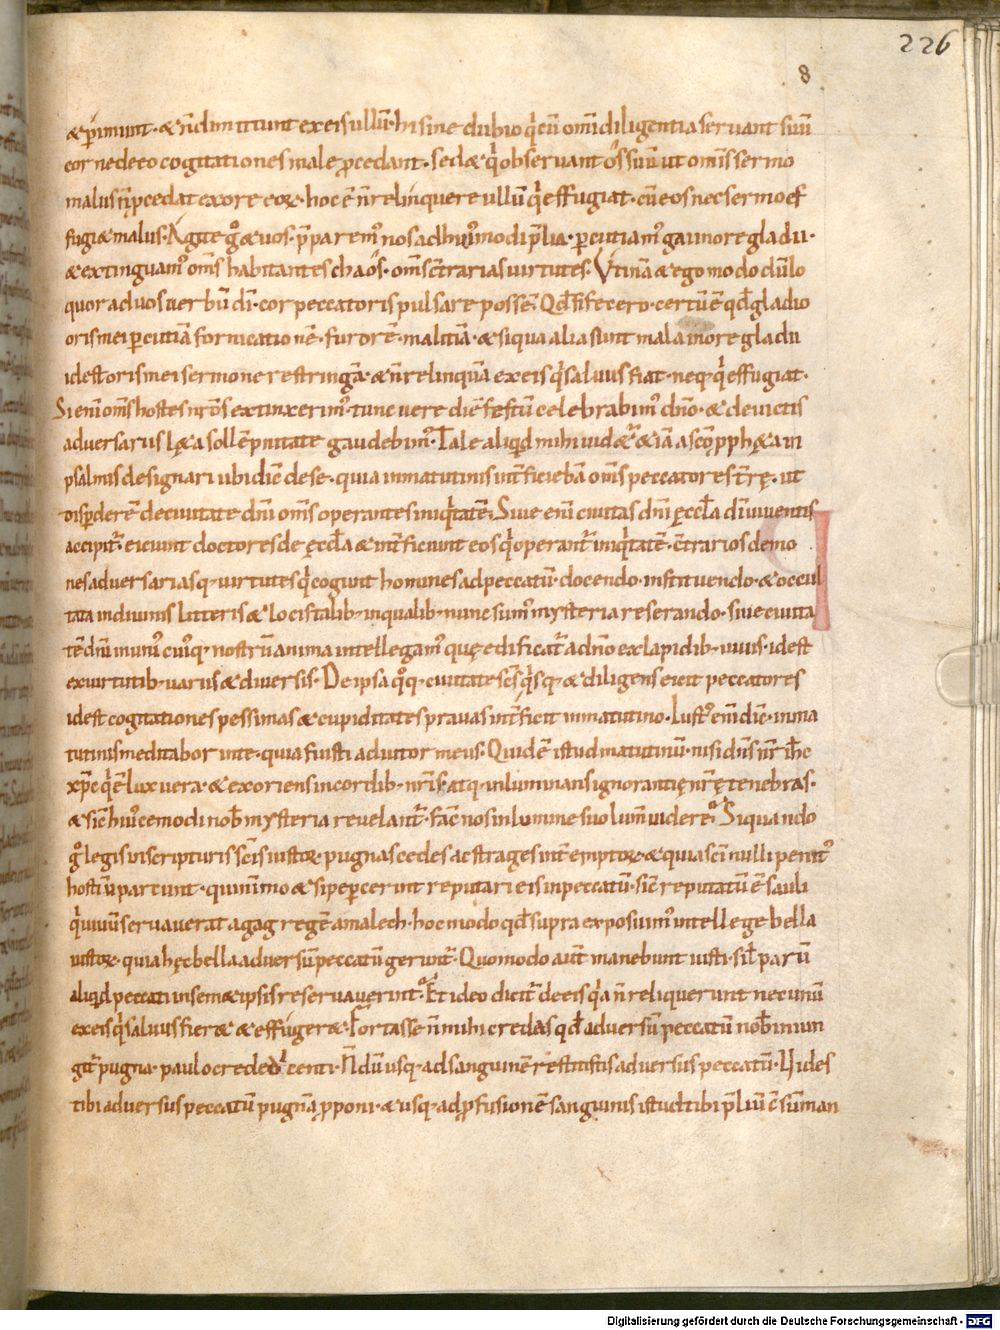 226
8
&p̄imunt· & n̄ dimittunt ex eis ullū· hi sine dubio q̇ cū omi diligentia servant suū
cor ne de eo cogitationes male p̱cedant· sed & q̇ observant os suum ut omis sermo
malus n̄ p̱cedat ex ore eoꝝ· hoc ē n̄ relinquere ullū q̇ effugiat· cū eos nec sermo ef
fugi& malus· Agite g̊ & uos· p̄parem᾽ nos ad hui᾽modi p̄lia· ꝑcutiam᾽ gai in ore gladii·
& extinguam᾽ om̄s habitantes chaos· om̄s c̄trarias uirtutes· Utinā & ego modo dū lo
quor ad uos uerbū dī· cor peccatoris pulsare possē· Qd̄ si fecero· certū ē qd̄ gladio
oris mei ꝑcutiā fornicationē· furorē· malitiā· & siqua alia sunt mala in ore gladii
id est oris mei sermone restringā· & n̄ relinquā ex eis q̇ saluus fiat· neq· q̇ effugiat·
Si enī om̄s hostes nr̄os extinxerim᾽· tunc vere diē festū celebrabim᾽ dn̄o· & deuictis
adversariis l&a sollēpnitate gaudebim᾽· Tale aliqd mihi uid&ˀ & iā a sc̄o pph&a in
psalmis designari ubi dic̄ de se· quia in matutinis int̄ficiebā om̄s peccatores tr̄ę· ut
disꝑderē de ciuitate dn̄i om̄s operantes iniq̇tatē· Siue enī ciuitas dn̄i ęccl̄a dī uiuentis
accipit᾽· eiciunt doctores de ęccl̄a & int̄ficiunt eos q̇ operant᾽ iniq̇tatē· c̄trarios demo
nes adversariasq· uirtutes q̇ cogunt homines ad peccatū· docendo· instituendo· & occul
tata in diuinis litteris & locis talib· in qualib· nunc sum᾽ mysteria reserando· siue ciuita
tē dn̄i unius cui᾽q· nostrū anima intellegam᾽ quę edificat᾽ a dn̄o ex lapidib· uiuis· id est
ex uirtutib· uariis & diversis· De ipsa q̊q· ciuitate sc̄s q̇sq· & diligens eicit peccatores
id est cogitationes pessimas & cupiditates prauas int̄ficit in matutino· Iust᾽ enī dic̄· in ma
tutinis meditabor in te· quia fuisti adiutor meus· Quid ē istud matutinū· nisi dn̄s nr̄ ih̄c
xp̄c q̇ ē lux uera· & exoriens in cordib· nr̄is· atq· inluminans ignorantię nr̄ę tenebras·
& sic hui᾽cemodi nob̄ mysteria revelant᾽· fac̄ nos in lumine suo lum̄ uidere· Si quando
g̊ legis in scripturis sc̄is iustoꝝ pugnas cedes ac strages int̄emptoꝝ & quia sc̄i nulli penit᾽
hostiū parcunt· quinimmo & si pepercerint reputari eis in peccatū· sic̄ reputatū ē sauli
q̇ uiuū servaverat agag regē amalech· hoc modo qd̄ supra exposuim᾽ intellege bella
iustoꝝ· quia hęc bella adversū peccatū gerunt᾽· Quomodo aut̄ manebunt iusti· si l̄ parū
aliqd peccati in sem&ipsis reservaverint· Et ideo dicit᾽ de eis q̇a n̄ reliquerunt nec unū
ex eis q̇ saluus fier& & effuger&· Fortasse n̄ mihi credas qd̄ adversū peccatū nob̄ inmin
git᾽ pugna· paulo crede dicenti· Ndū usq· ad sanguinē restitistis adversus peccatū· Vides
tibi adversus peccatū pugnā ꝓponi· & usq· ad ꝓfusionē sanguinis istud tibi p̄liū ē sum̄man
Digitalisierung gefördert durch die Deutsche Forschungsgemeinschaft - DFG